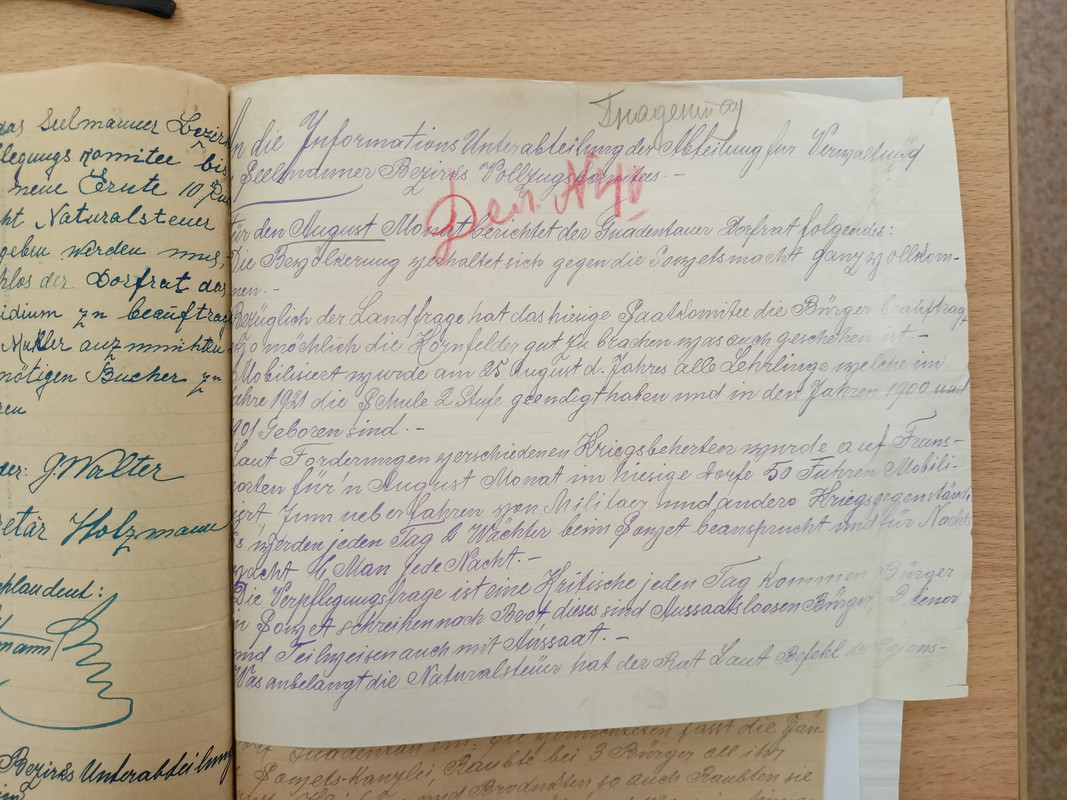 das Seelmanner Bezirks
legungs Komitee bis
neue Ernte 10 Pud
ht Naturalsteuer
geben werden mus,
hlos der Dorfrat das
idium zu beauftrag
Mutter
nötigen Bücher zu
ren
er: J. Walter
etär Holzmann
Bezirks Unterabteilung
Гнадентау
An die Informations Unterabteilung der Abteilung für Verwaltung
Seelmanner Bezirks Vollzugskomitees. -
Дел.
für den August Monat berichtet der Gnadentauer Dorfrat folgendes:
Die Bevölkerung verhaltet sich gegen die Sowjetsmacht ganz vollkom-
men. -
Bezüglich der Landfrage hat das hiesige Saatkomitee die Bürger beauftragt
wo möchlich die Kornfelder gut zu brachen was auch geschehen ist. -
Mobilisiert wurde am 25 August d. Jahres alle Lehrlinge welche im
ahre 1921 die Schule 2 Stufe geendigt haben und in den Jahren 1900 und
901 Geboren sind. -
Laut Forderungen verschiedenen Kriegsbeherten wurde auf Trans-
porten für'n August Monat im hiesige Dorfe 50 Fuhren Mobili-
sert zum ueberfahren von Militaer und andere Kriegsgegenstände
Es werden jeden Tag Wächter beim Sowjet beansprucht und für Nacht
wacht Man jede Nacht. -
Die Verpflegungsfrage ist eine Kritische jeden Tag kommen Bürger
n Sowjet schreihen nach Brot dieses sind Aussaatsloosen Bürger,
und Teilweisen auch mit Aussaat. -
Was anbelangt die Naturalsteüer hat der Rat Laut Befehl des Rajons-
Gnadentau ein:
Sowjets-Kanzlei, Raubte bei 3 Bürger all ihr
und Brodnäten so auch Raubten sie